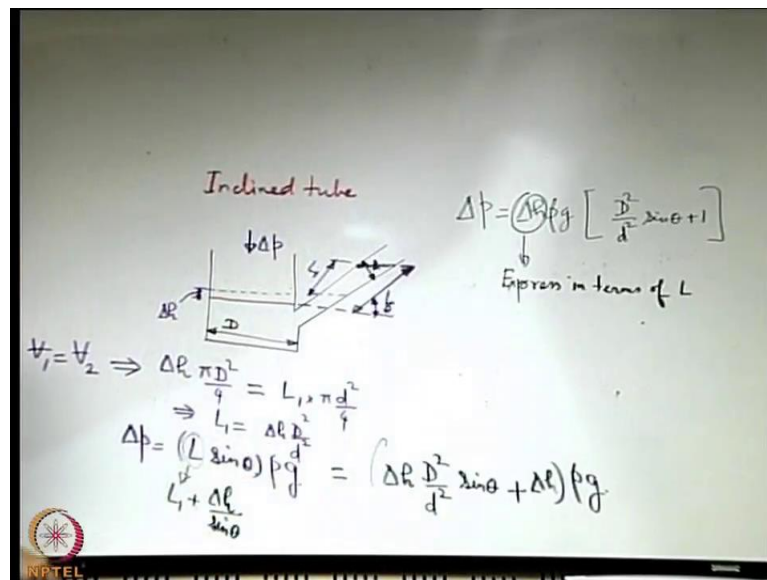 Inclined tube
Δp = Δh ρg [ D²/d² sinθ + 1 ]
Express in terms of L
↓Δp
L₁
Δh
D
V₁ = V₂ ⇒ Δh πD²/4 = L₁ × πd²/4
⇒ L₁ = Δh D²/d²
Δp = (L sinθ) ρg = (Δh D²/d² sinθ + Δh) ρg
L₁ + Δh/sinθ
NPTEL